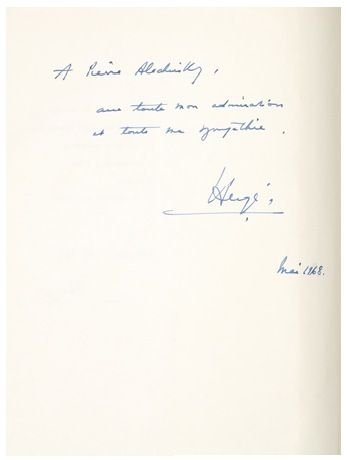 A Pierre Alechinsky,
avec toute mon admiration
et toute ma sympathie.
Hergé.
Mai 1968.